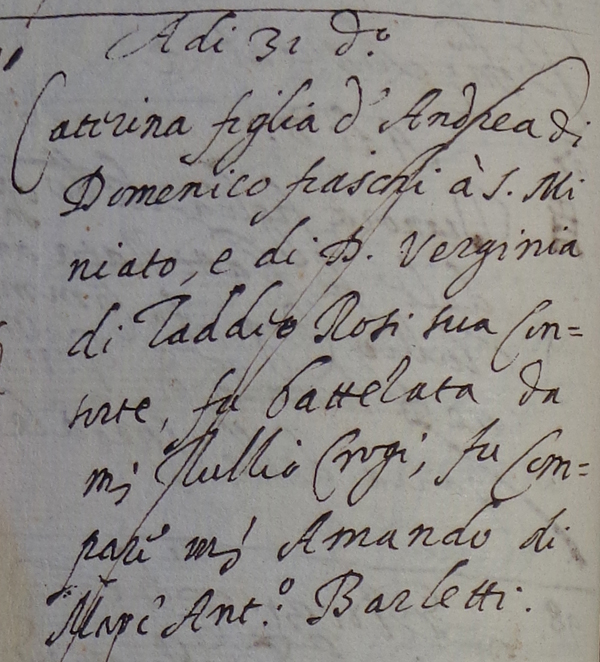 Adi 31 d.º
Caterina figlia d' Andrea di
Domenico fraschi à S. Mi
niato, e di D. Verginia
di Taddeo Rosi sua Con=
sorte, fu battezata da
m; Crogi, fu Com=
pare m; Amando di
Ant.º Barletti.